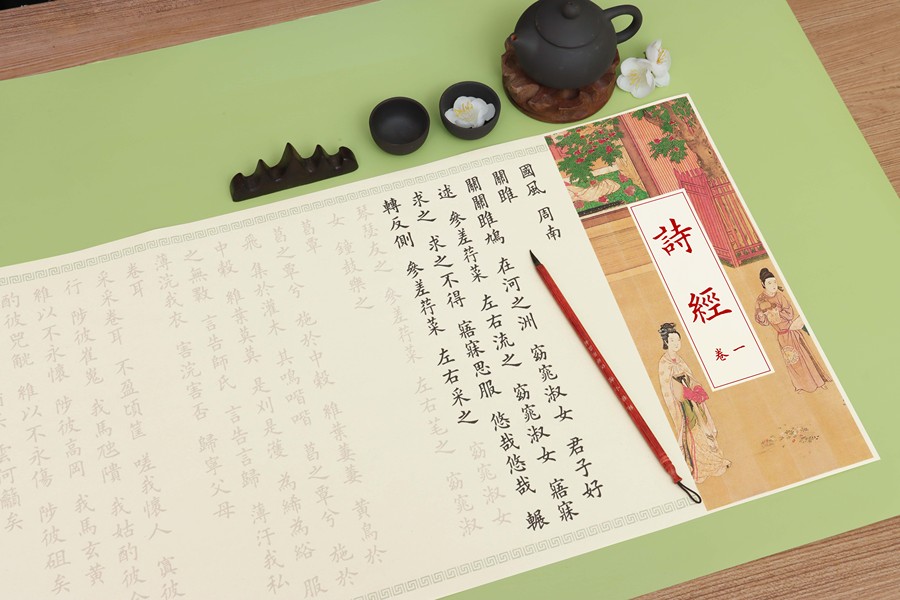 詩經
卷一
國風 周南
關雎
關關雎鳩 在河之洲 窈窕淑女 君子好
逑 參差荇菜 左右流之 窈窕淑女 寤寐
求之 求之不得 寤寐思服 悠哉悠哉 輾
轉反側 參差荇菜 左右采之 窈窕淑女
琴瑟友之 參差荇菜 左右芼之 窈窕淑
女 鐘鼓樂之
葛覃
葛之覃兮 施於中穀 維葉萋萋 黃鳥於
飛 集於灌木 其鳴喈喈 葛之覃兮 施於
中穀 維葉莫莫 是刈是濩 為絺為綌 服
之無斁 言告師氏 言告言歸 薄汙我私
薄浣我衣 害浣害否 歸寧父母
卷耳
采采卷耳 不盈頃筐 嗟我懷人 寘彼
行 陟彼崔嵬 我馬虺隤 我姑酌彼
維以不永懷 陟彼高岡 我馬玄黃
酌彼兕觥 維以不永傷 陟彼砠矣
云何籲矣